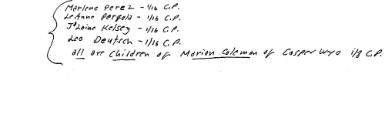 Marlene Perez - 1/16 C.P.
LeAnne Pergola - 1/16 C.P.
J'Laine Kelsey - 1/16 C.P.
Leo Deutsch - 1/16 C.P.
all are Children of Marion Coleman of Casper Wyo 1/8 C.P.